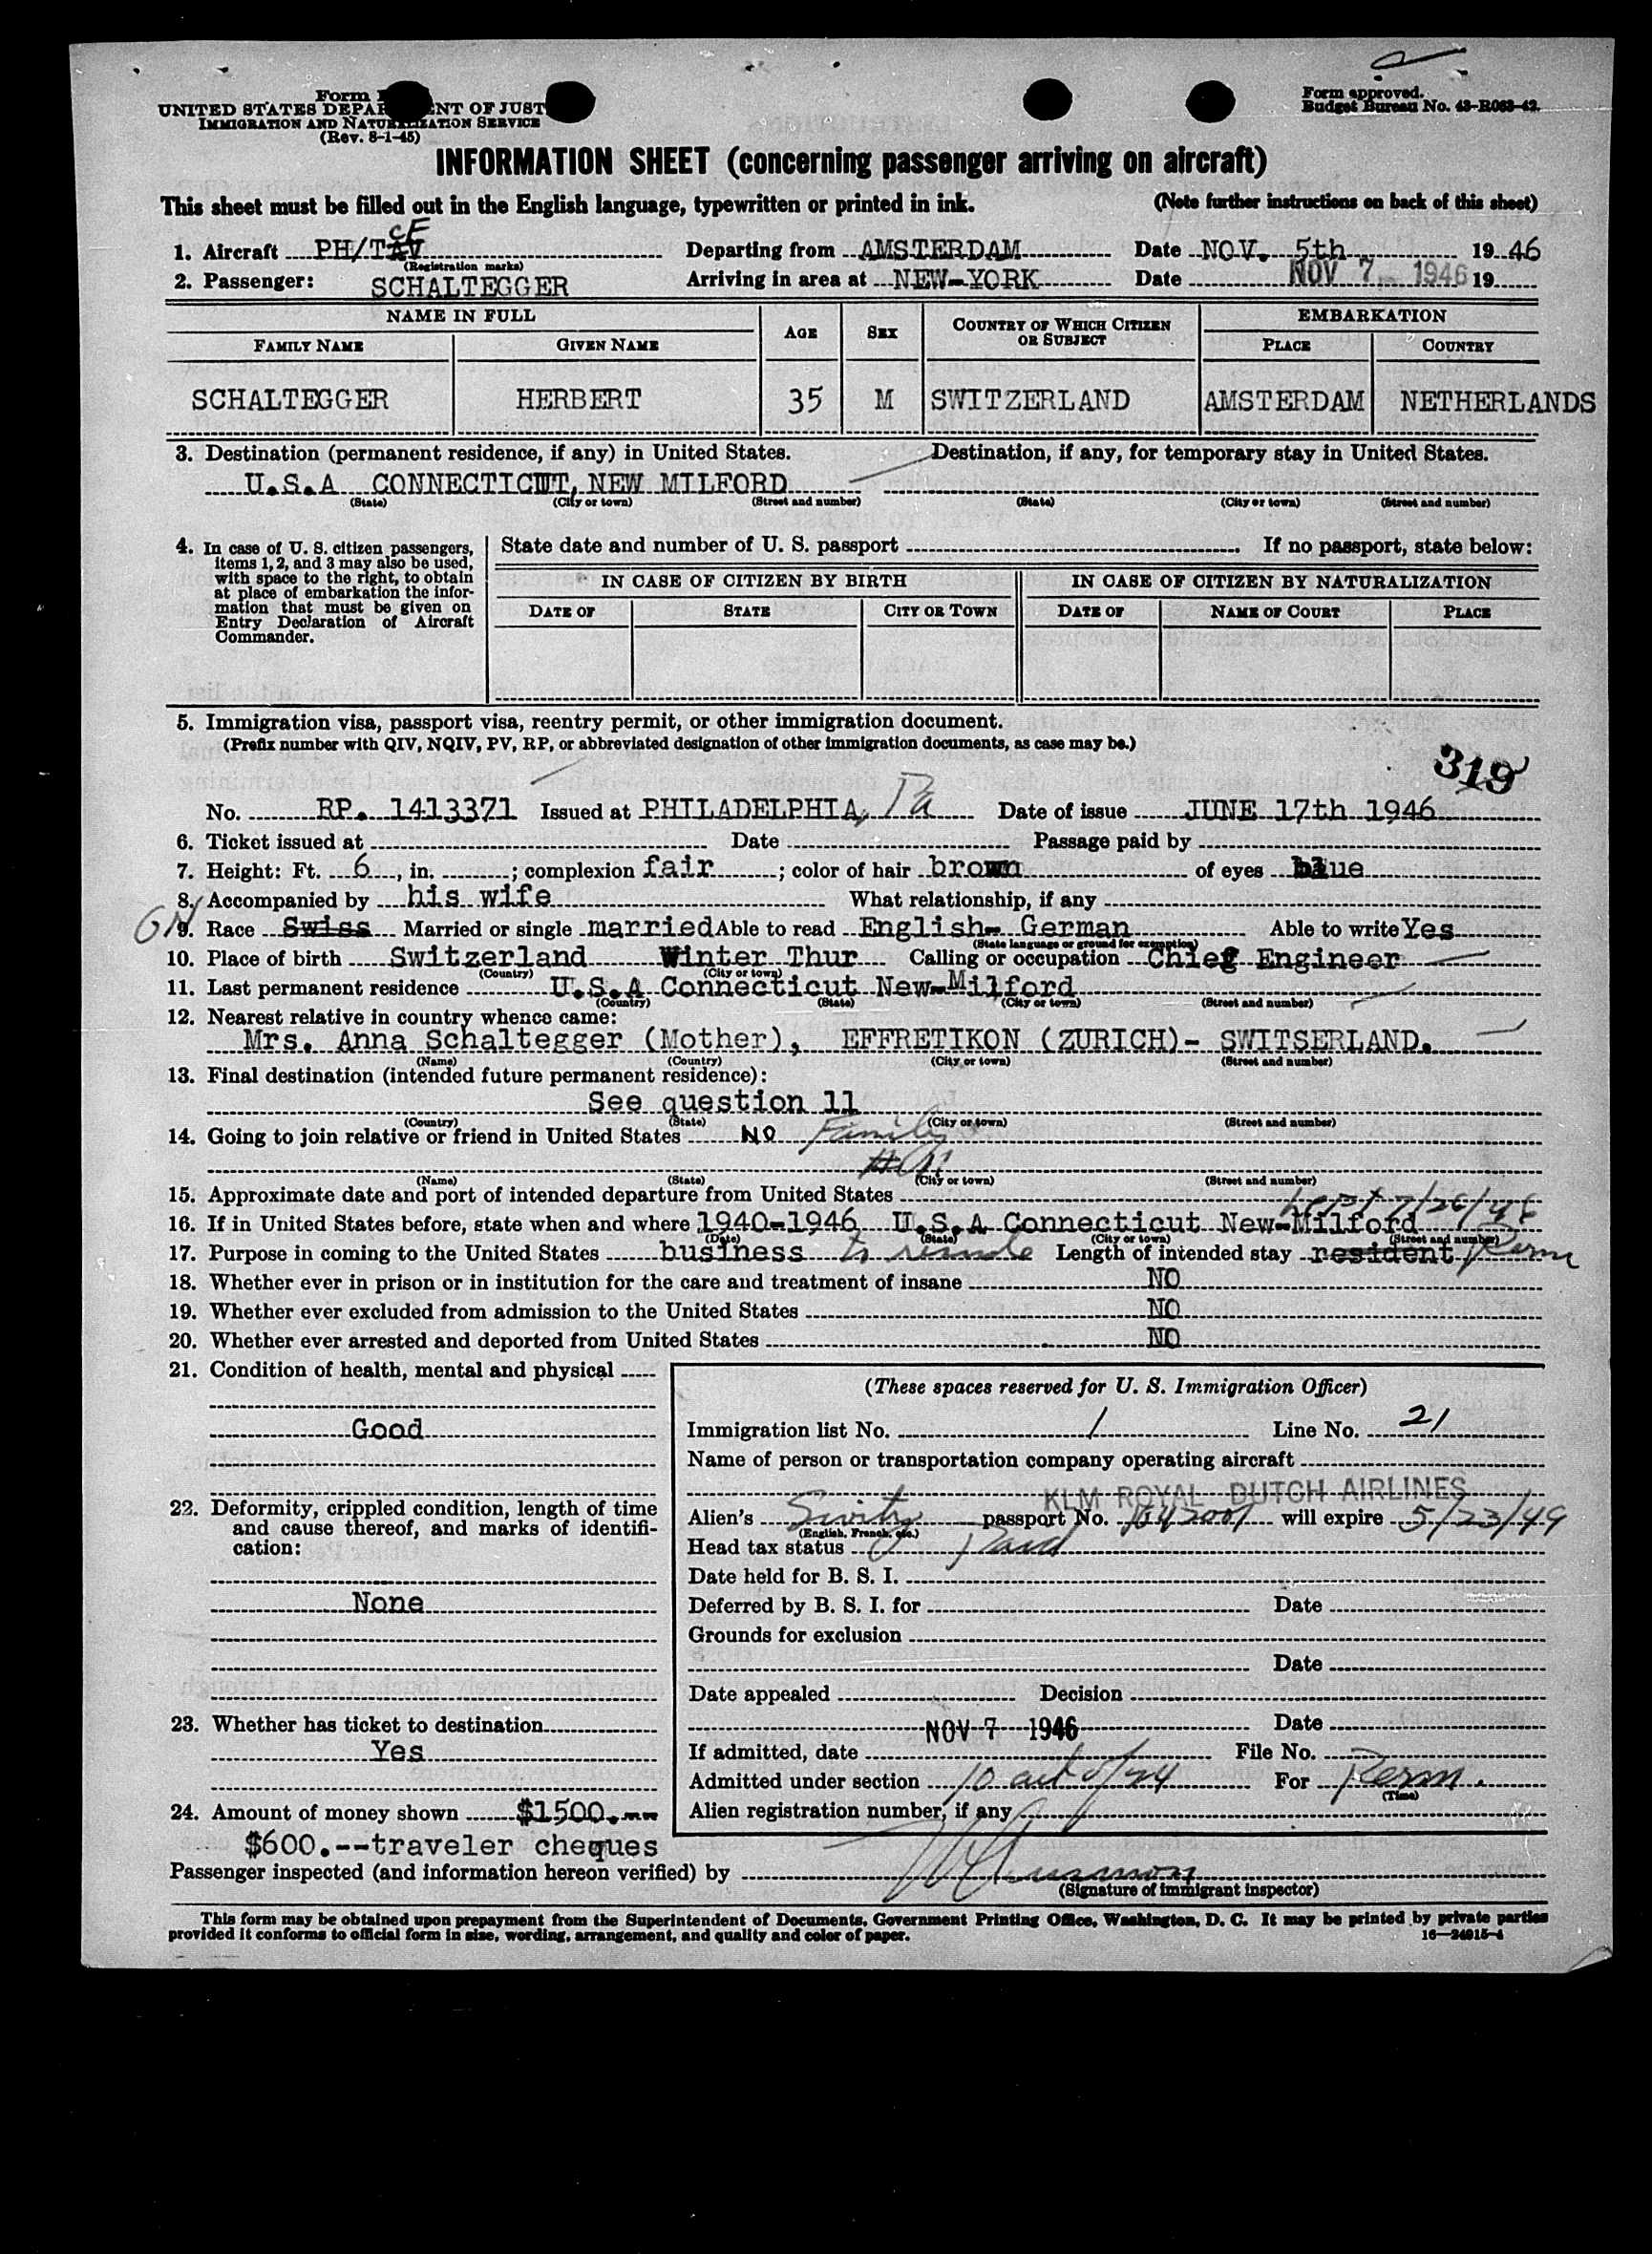 Form
UNITED STATES DEPAR ENT OF JUST
IMMIGRATION AND NATURALIZATION SERVICE
(Rev. 8-1-45)
Form approved.
Budget Bureau No. 43-R063-42.
INFORMATION SHEET (concerning passenger arriving on aircraft)
This sheet must be filled out in the English language, typewritten or printed in ink. (Note further instructions on back of this sheet)
1. Aircraft PH/TAV CF Departing from AMSTERDAM Date NOV. 5th 19 46
(Registration marks)
2. Passenger: SCHALTEGGER Arriving in area at NEW-YORK Date NOV 7 1946 19
NAME IN FULL AGE SEX COUNTRY OF WHICH CITIZEN OR SUBJECT EMBARKATION
FAMILY NAME GIVEN NAME PLACE COUNTRY
SCHALTEGGER HERBERT 35 M SWITZERLAND AMSTERDAM NETHERLANDS
3. Destination (permanent residence, if any) in United States. Destination, if any, for temporary stay in United States.
U.S.A CONNECTICUT, NEW MILFORD
(State) (City or town) (Street and number) (State) (City or town) (Street and number)
4. In case of U. S. citizen passengers, items 1, 2, and 3 may also be used, with space to the right, to obtain at place of embarkation the information that must be given on Entry Declaration of Aircraft Commander.
State date and number of U. S. passport If no passport, state below:
IN CASE OF CITIZEN BY BIRTH IN CASE OF CITIZEN BY NATURALIZATION
DATE OF STATE CITY OR TOWN DATE OF NAME OF COURT PLACE
5. Immigration visa, passport visa, reentry permit, or other immigration document.
(Prefix number with QIV, NQIV, PV, RP, or abbreviated designation of other immigration documents, as case may be.)
319
No. RP. 1413371 Issued at PHILADELPHIA, Pa Date of issue JUNE 17th 1946
6. Ticket issued at Date Passage paid by
7. Height: Ft. 6, in. ; complexion fair ; color of hair brown of eyes blue
8. Accompanied by his wife What relationship, if any
9. Race Swiss Married or single married Able to read English- German Able to write Yes
(State language or ground for exemption)
10. Place of birth Switzerland Winter Thur Calling or occupation Chief Engineer
(Country) (City or town)
11. Last permanent residence U.S.A Connecticut New-Milford
(Country) (State) (City or town) (Street and number)
12. Nearest relative in country whence came:
Mrs. Anna Schaltegger (Mother), EFFRETIKON (ZURICH)- SWITSERLAND.
(Name) (Country) (City or town) (Street and number)
13. Final destination (intended future permanent residence):
See question 11
(Country) (State) (City or town) (Street and number)
14. Going to join relative or friend in United States NO Family
(Name) (State) (City or town) (Street and number)
15. Approximate date and port of intended departure from United States
7/26/46
16. If in United States before, state when and where 1940-1946 U.S.A Connecticut New-Milford
(Date) (State) (City or town) (Street and number)
17. Purpose in coming to the United States business to reside Length of intended stay resident Perm
18. Whether ever in prison or in institution for the care and treatment of insane NO
19. Whether ever excluded from admission to the United States NO
20. Whether ever arrested and deported from United States NO
21. Condition of health, mental and physical
Good
22. Deformity, crippled condition, length of time and cause thereof, and marks of identification:
None
23. Whether has ticket to destination
Yes
24. Amount of money shown $1500.--
$600.--traveler cheques
(These spaces reserved for U. S. Immigration Officer)
Immigration list No. 1 Line No. 21
Name of person or transportation company operating aircraft
KLM ROYAL DUTCH AIRLINES
Alien's passport No. will expire 5/23/49
(English, French, etc.)
Head tax status Paid
Date held for B. S. I.
Deferred by B. S. I. for Date
Grounds for exclusion
Date
Date appealed Decision
NOV 7 1946 Date
If admitted, date File No.
Admitted under section 10 act of 24 For Perm.
(Time)
Alien registration number, if any
Passenger inspected (and information hereon verified) by
(Signature of immigrant inspector)
This form may be obtained upon prepayment from the Superintendent of Documents, Government Printing Office, Washington, D. C. It may be printed by private parties
provided it conforms to official form in size, wording, arrangement, and quality and color of paper. 16—24915-4